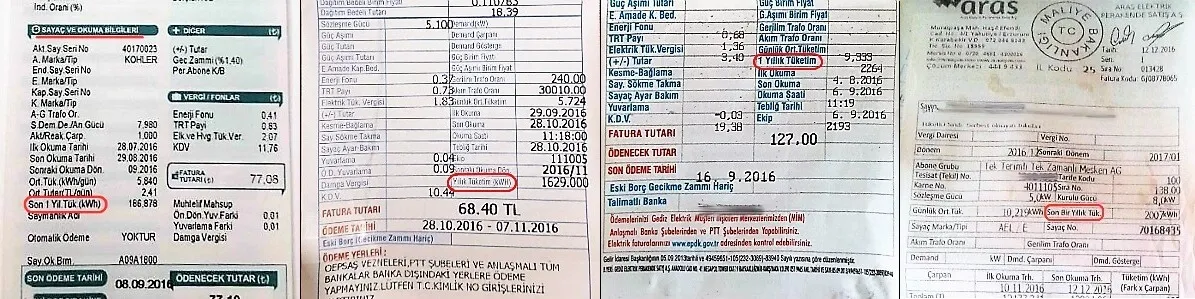 SAYAÇ VE OKUMA BİLGİLERİ
Akt.Say.Seri No 40170023
A. Marka/Tip KOHLER
End.Say.Seri No
E. Marka/Tip
Kap.Say.Seri No
K. Marka/Tip
A-G Trafo Or.
S.Dem.De./An.Gücü 7,980
Akt/Reak.Çarp. 1,000
İlk Okuma Tarihi 28.07.2016
Son Okuma Tarihi 29.08.2016
Son Okuma Dönm. 09.2016
Ort.Tük.(kWh/gün) 5,840
Ort.Tutar(TL/gün) 2,41
Son 1 Yıl.Tük.(kWh) 186,878
Saymanlık Adı
Otomatik Ödeme YOKTUR
Say.Ok.Brm. A09A1800
SON ÖDEME TARİHİ
08.09.2016
DİĞER
(+/-) Tutar
Gec Zammi (%1,40)
Per.Abone K/B
VERGİ / FONLAR
Enerji Fonu 0,41
TRT Payı 0,83
Elk ve Hvg Tük.Ver. 2,07
KDV 11,76
FATURA TUTARI 77,08
Muhtelif Mahsup
Ö.Dön.Yuv.Farkı 0,01
Yuvarlama Farkı 0,01
Damga Vergisi
ÖDENECEK TUTAR
Dağıtım Bedeli Tutarı 18.39
Sözleşme Gücü 5.100 Demand(kW)
Güç Aşımı Demand Çarpanı
Güç Aşımı Tutarı Demand Gösterge
Güç Aşımı Bedeli Güç Birim Fiyat
E.Amade Kap.Bed. Güç Aşımı Birim Fiyat
Enerji Fonu Gerilim Trafo Oranı 240.00
TRT Payı 0.73 Akım Trafo Oranı 30010.00
Elektrik Tük. Vergisi 1.83 Günlük Ort.Tüketim 5.724
(+/-) Tutar İlk Okuma 29.09.2016
Kesme-Bağlama Son Okuma 28.10.2016
Say Sökme Takma Okuma Saati 11:18:00
Sayaç Ayar Bakım Tebliğ Tarihi 28.10.2016
Yuvarlama 0.04 Ekip 111005
Ö.D. Yuvarlama 0.09 Son Okuma Dön. 2016/11
Damga Vergisi Yıllık Tüketim (kWh) 1629.000
K.D.V. 10.44
FATURA TUTARI 68.40 TL
ÖDEME TARİHİ 28.10.2016 - 07.11.2016
Eski Borç (Gecikme Zammı Hariç)
ÖDEME YERLERİ :
OEPSAŞ VEZNELERİ,PTT ŞUBELERİ VE ANLAŞMALI TÜM
BANKALAR BANKA DIŞINDAKİ YERLERE ÖDEME
YAPMAYINIZ.LÜTFEN T.C.KİMLİK NO GİRİŞLERİNİZİ
Güç Aşımı Tutarı Güç Birim Fiyat
Güç Aşımı Bedeli Güç Aşımı Birim Fiyat
E. Amade K. Bed. G.Aşımı Birim Fiyat
Enerji Fonu Gerilim Trafo Oranı
TRT Payı 0,68 Akım Trafo Oranı
Elektrik Tük.Vergisi 1,36 Günlük Ort.Tüketim 9,333
(+/-) Tutar 3,40 1 Yıllık Tüketim 2264
Kesme-Bağlama İlk Okuma 4. 8.2016
Say. Sökme Takma Son Okuma 6. 9.2016
Sayaç Ayar Bakım Okuma Saati 11:19
Yuvarlama -0,03 Tebliğ Tarihi 6. 9.2016
K.D.V. 19,38 Ekip 2193
FATURA TUTARI 127.00
ÖDENECEK TUTAR
SON ÖDEME TARİHİ 16. 9.2016
Eski Borç Gecikme Zammı Hariç
Talimatlı Banka
Ödemelerinizi Gediz Elektrik Müşteri İşlemleri Merkezlerimizden (MİM)
Anlaşmalı Banka Şubelerinden ve PTT Şubelerinden Yapabilirsiniz.
Elektrik faturalarınızı www.epdk.gov.tr adresinden kontrol edebilirsiniz.
aras ARAS ELEKTRİK
PERAKENDE SATIŞ A.Ş
MALİYE BAKANLIĞI
TC
İL Kodu 25
Tarih: 12.12.2016
Sıra No 013428
Fatura Kodu: GJ08778065
Çözüm Merkezi 444 9 433
Sayın
Vergi Dairesi Vergi No.
Dönem 2016 12 Sonraki Dönem 2017/01
Abone Grubu Tek Terimli Tek Zamanlı Mesken AG
Tesisat (Tekil) No. Tarife Kodu 100
Karne No 401110 Sıra No. 138.00
Sözleşme Gücü 5,0kW Kurulu Gücü 8,0kW
Günlük Ort.Tük. 10,219kWh Son Bir Yıllık Tük. 2007kWh
Sayaç Marka/Tipi AEL / E Sayaç No. 70168435
Akım Trafo Oranı Gerilim Oranı
Demand kW Dmd. Çarpanı Dmd. Gösterge
Çarpan İlk Okuma Trh. Son Okuma Trh. Tüketim (kWh)
10.11.2016 12.12.2016 (Fark x Çarpan)